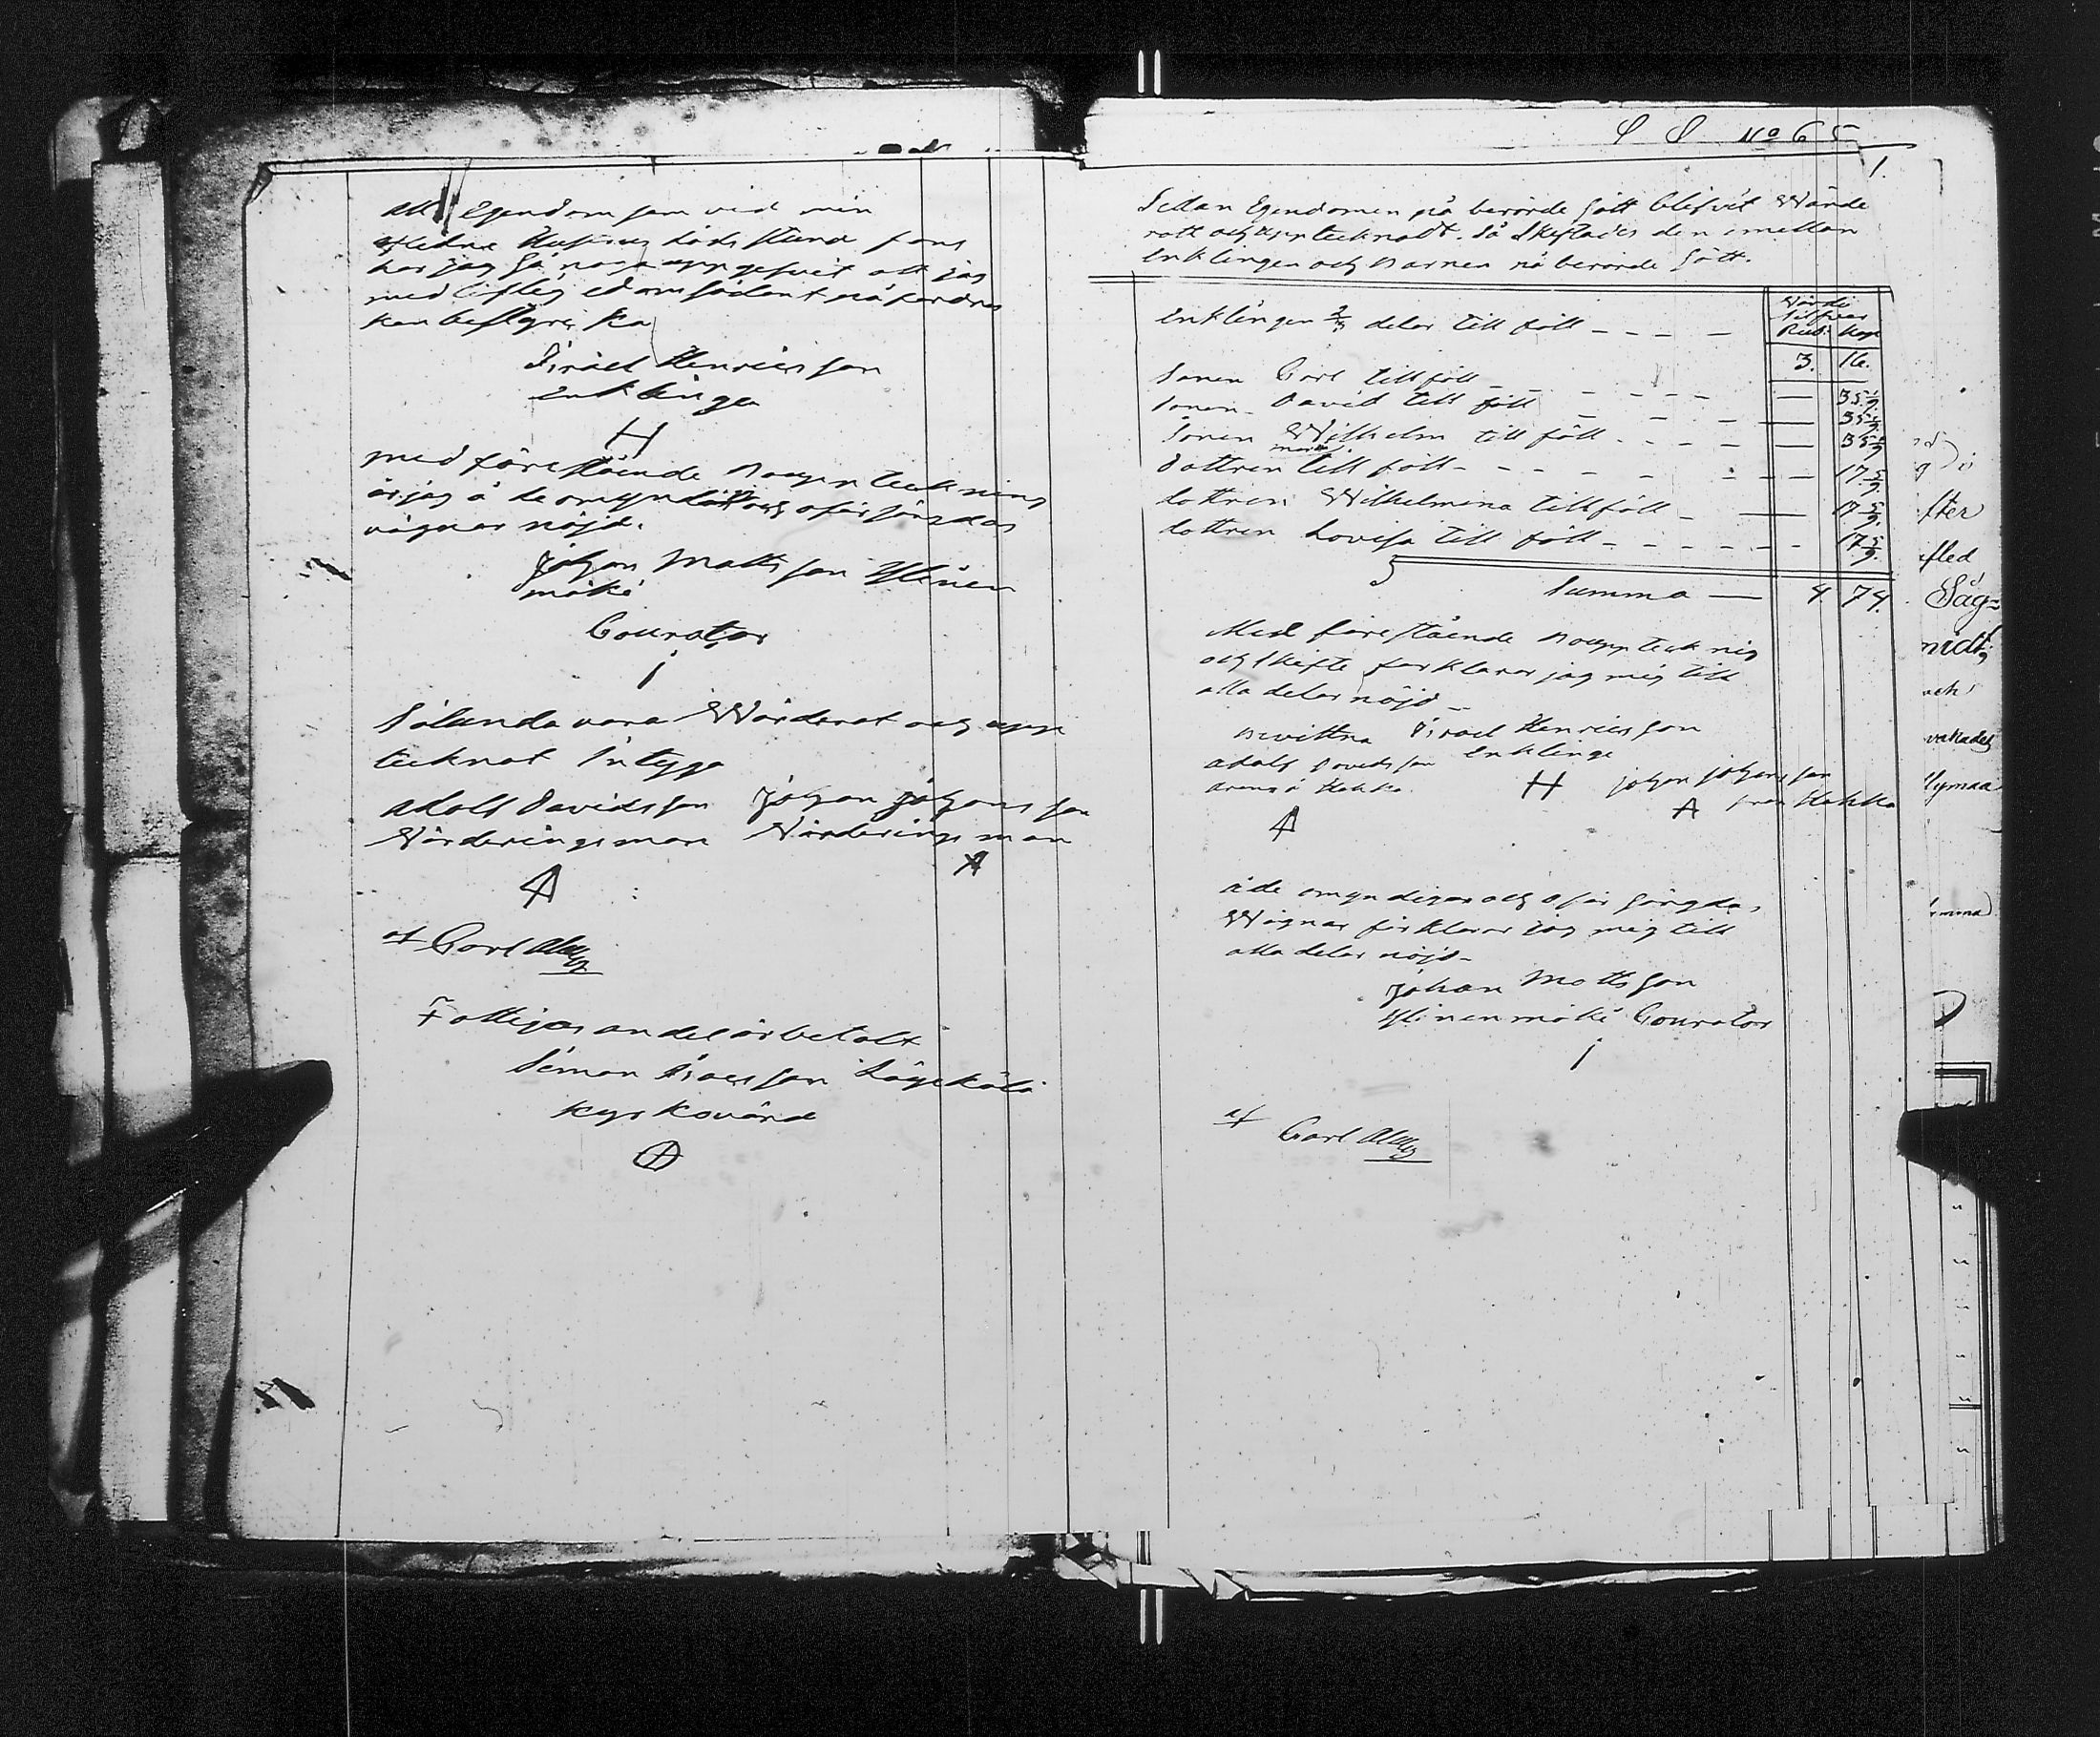 all Egendom som vid min
afledne Hustrus döds stund fans
har jag så noga uppgifvit att jag
med liflig edom sådant påfordras
kan bestyrcka
Israel Henricsson
enklinge
H
med föreståënde Bouppteckning
är jag å de omyndiga och oförsörgdas
vägnar nöjd.
Johan Mattsson Ylinen
mäki
Courator
j
Sålunda vara Wärderat och upp
tecknat Intyga
adolf Davidsson Johan Johansson
Wärderingsman Wärderingsman
A A
af Carl
Fattigas andel är betalt
Simon
kyrkovärd
S S No 65
1.
Sedan Egendomen på berörde sätt blifvit Wärde
ratt och upptecknadt. Så Skiftades den imellan
Enklingen och Barnen på berörde sätt.
Wärde
Silfver
Rub: Kop
Enklingen 2/3 delar till föll - - - - 3. 16.
Sonen Carl till föll - - - - - — 35 1/9.
Sonen David till föll - - - — 35 1/9.
Sonen Wilhelm till föll - - - - — 35 1/9
Dottren till föll - - - - - - — 17 5/9.
dottren Wilhelmina till föll - — 17 5/9.
dottren Lovisa till föll - - - - - - 17 5/9.
Summa — 4. 74.
Med föreståënde Bouppteckning
och skifte förklarar jag mig till
alla delar nöjd -
Bevittna Israel Henricsson
adolf Davidsson enklinge
H Johan Johansson
A från Hakka
A
å de omyndigas och oförsörgdas
Wägnar förklarar jag mig till
alla delar nöjd -
Johan Mattsson
Ylinenmäki Courator
j
af
Carl
fter
Säg=